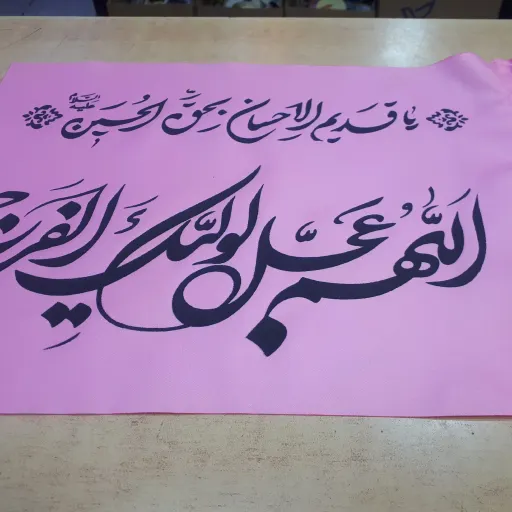 یا قدیم الاحسان بحق الحسین علیه السلام
اللهم عجل لولیک الفرج